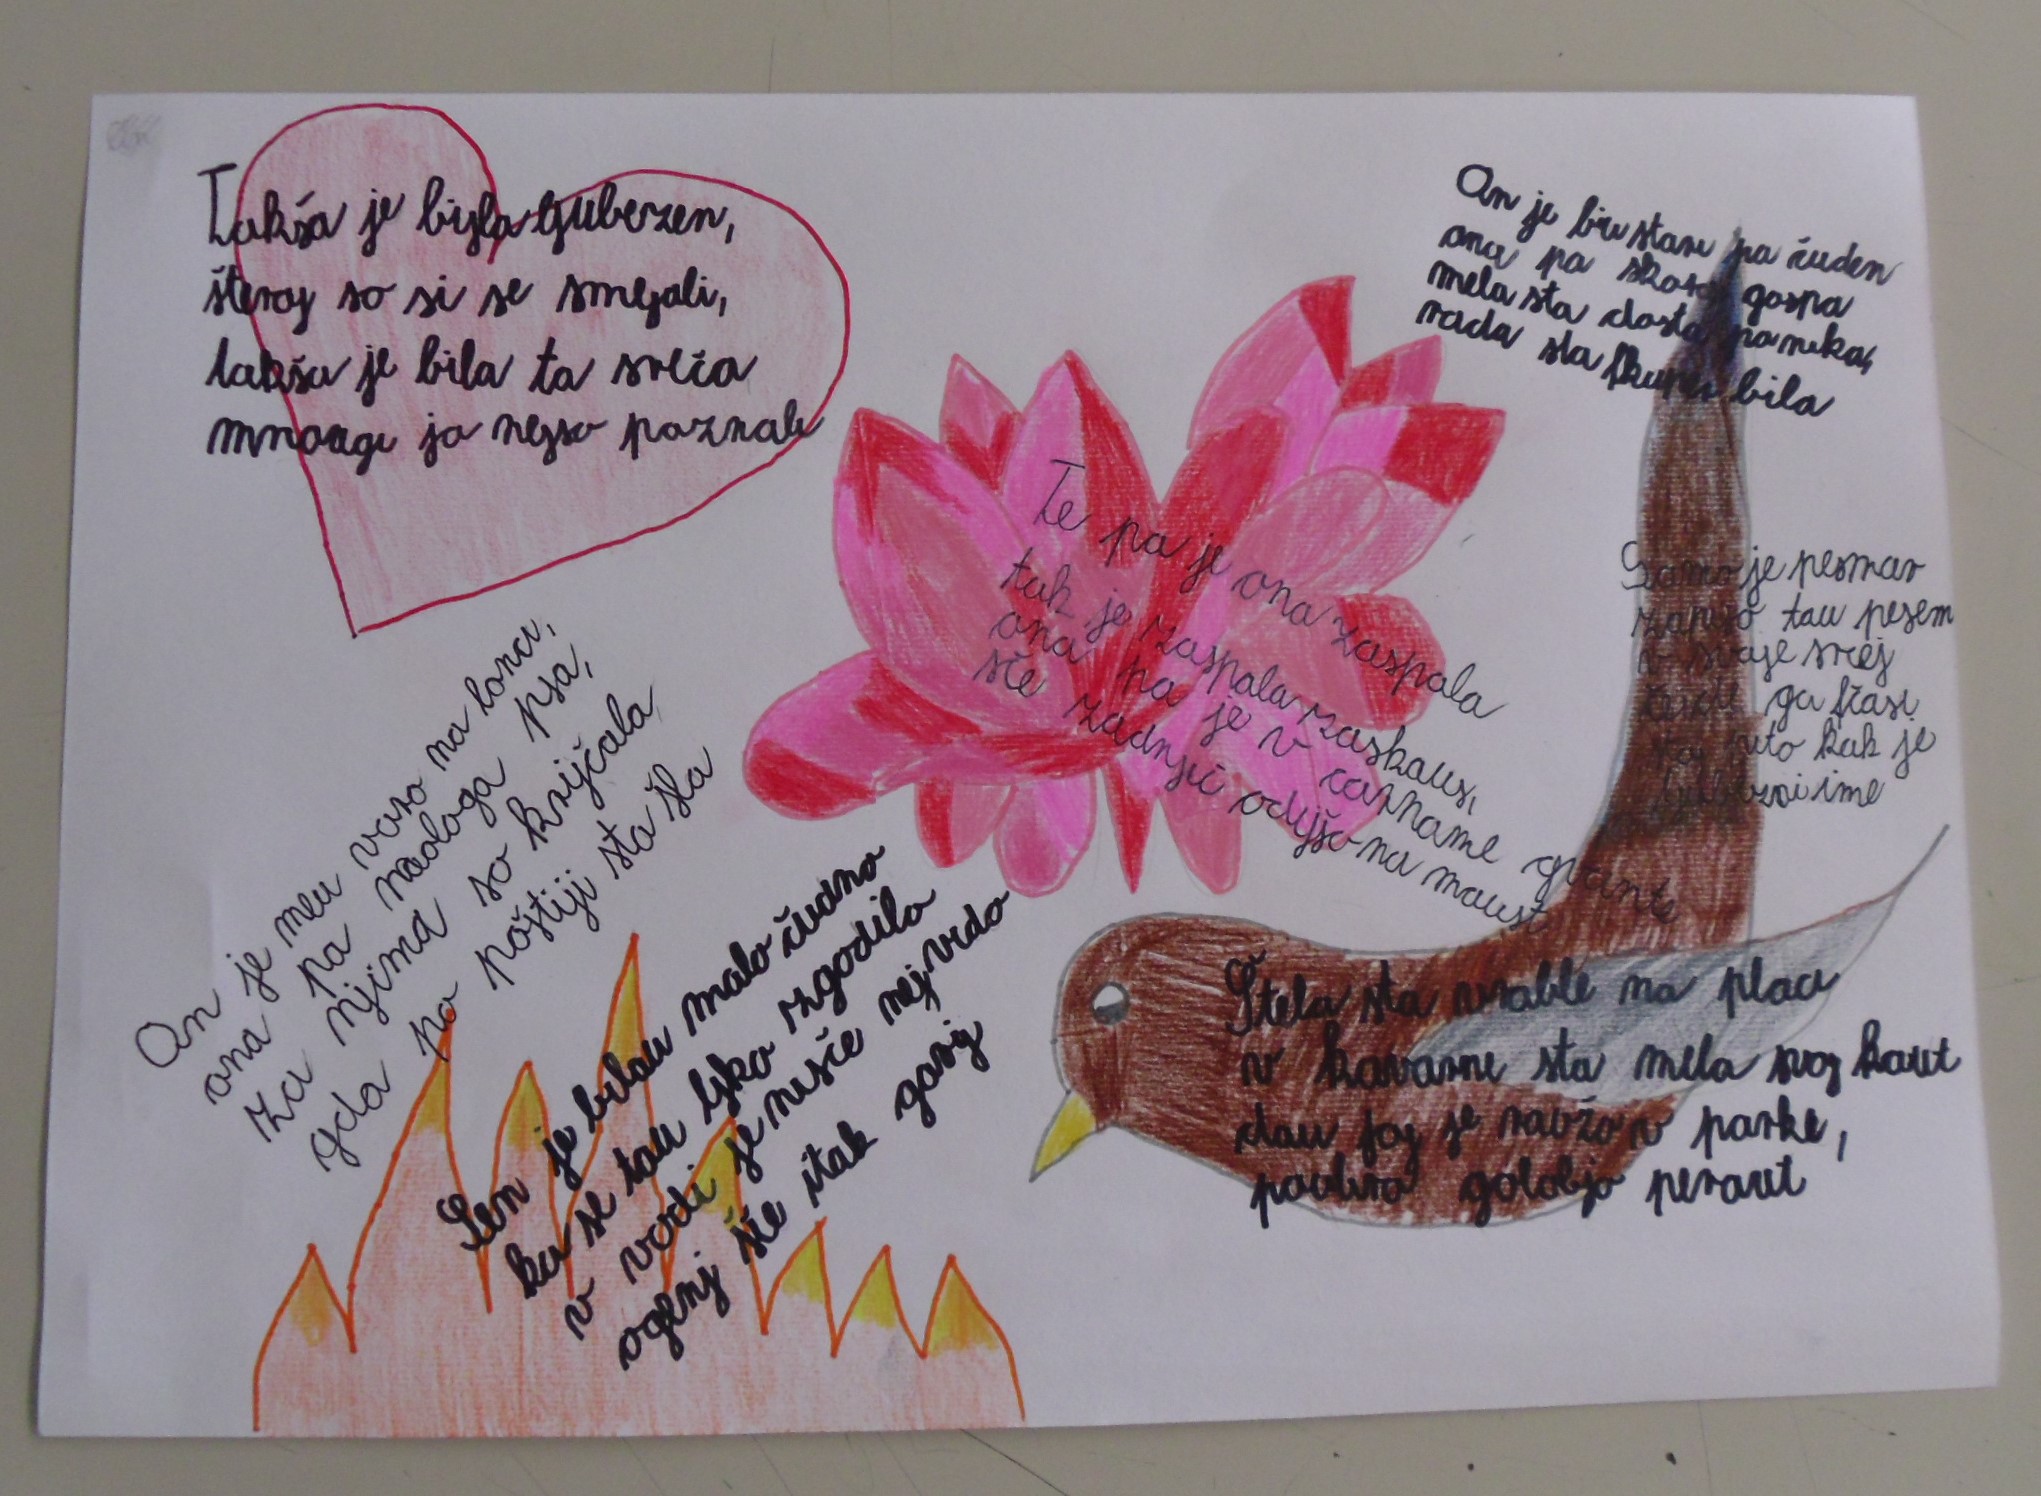 Takša je bijla ljubezen,
šteroj so si se smejali,
takša je bila ta sreča
mnaugi jo nejso poznali
An je biu stari pa čuden
ona pa skoroj gospa
mela sta dosta pameka,
rada sta skupej bila
Te pa je ona zaspala
tak je zaspala zaskausi,
ona pa je v carname gvante
šče zadnjič odijšo na maust
Samo je pesmar
zapiso tau pesem
v svoje srej
ga
pito kak je
ime
An je meu varo na lonci,
ona pa naologa psa,
za njima so krijčala
gda po poštiji sta šla
Sem je bilau malo čudno
ka se tau lejko zgodilo
v vodi je nišče nej vido
ogenj šče itak gorij
Štela sta vrable na placi
v kavarni sta mela svoj kaut
dau joj je raužo v parke,
pauvra golobjo peraut